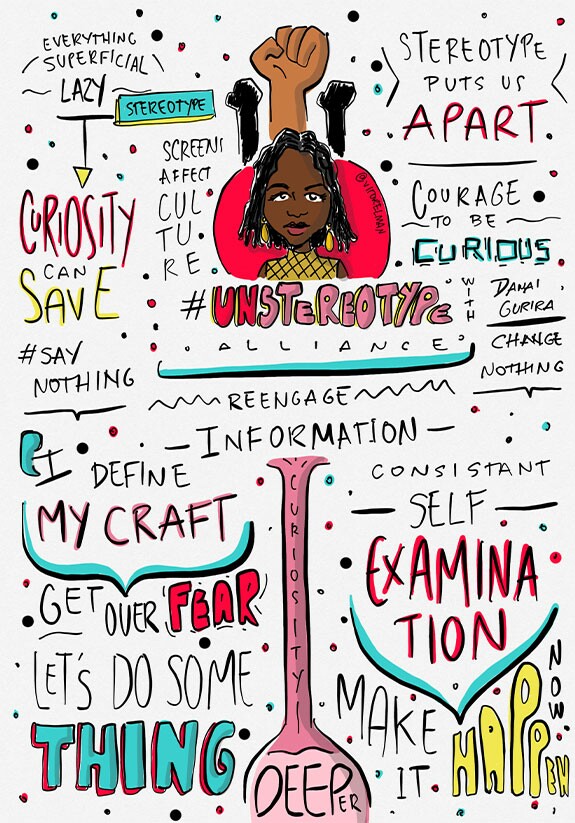 EVERYTHING
SUPERFICIAL
LAZY
STEREOTYPE
CURIOSITY
CAN
SAVE
#SAY
NOTHING
SCREENS
AFFECT
CUL
TU
RE
STEREOTYPE
PUTS US
APART.
COURAGE
TO BE
CURIOUS
#UNSTEREOTYPE
ALLIANCE
WITH
DANAI
GURIRA
CHANGE
NOTHING
REENGAGE
INFORMATION
I DEFINE
MY CRAFT
GET OVER FEAR
LET'S DO SOME
THING
CURIOSITY
DEEPER
CONSISTANT
SELF
EXAMINA
TION
MAKE
IT.
HAPPEN
NOW.